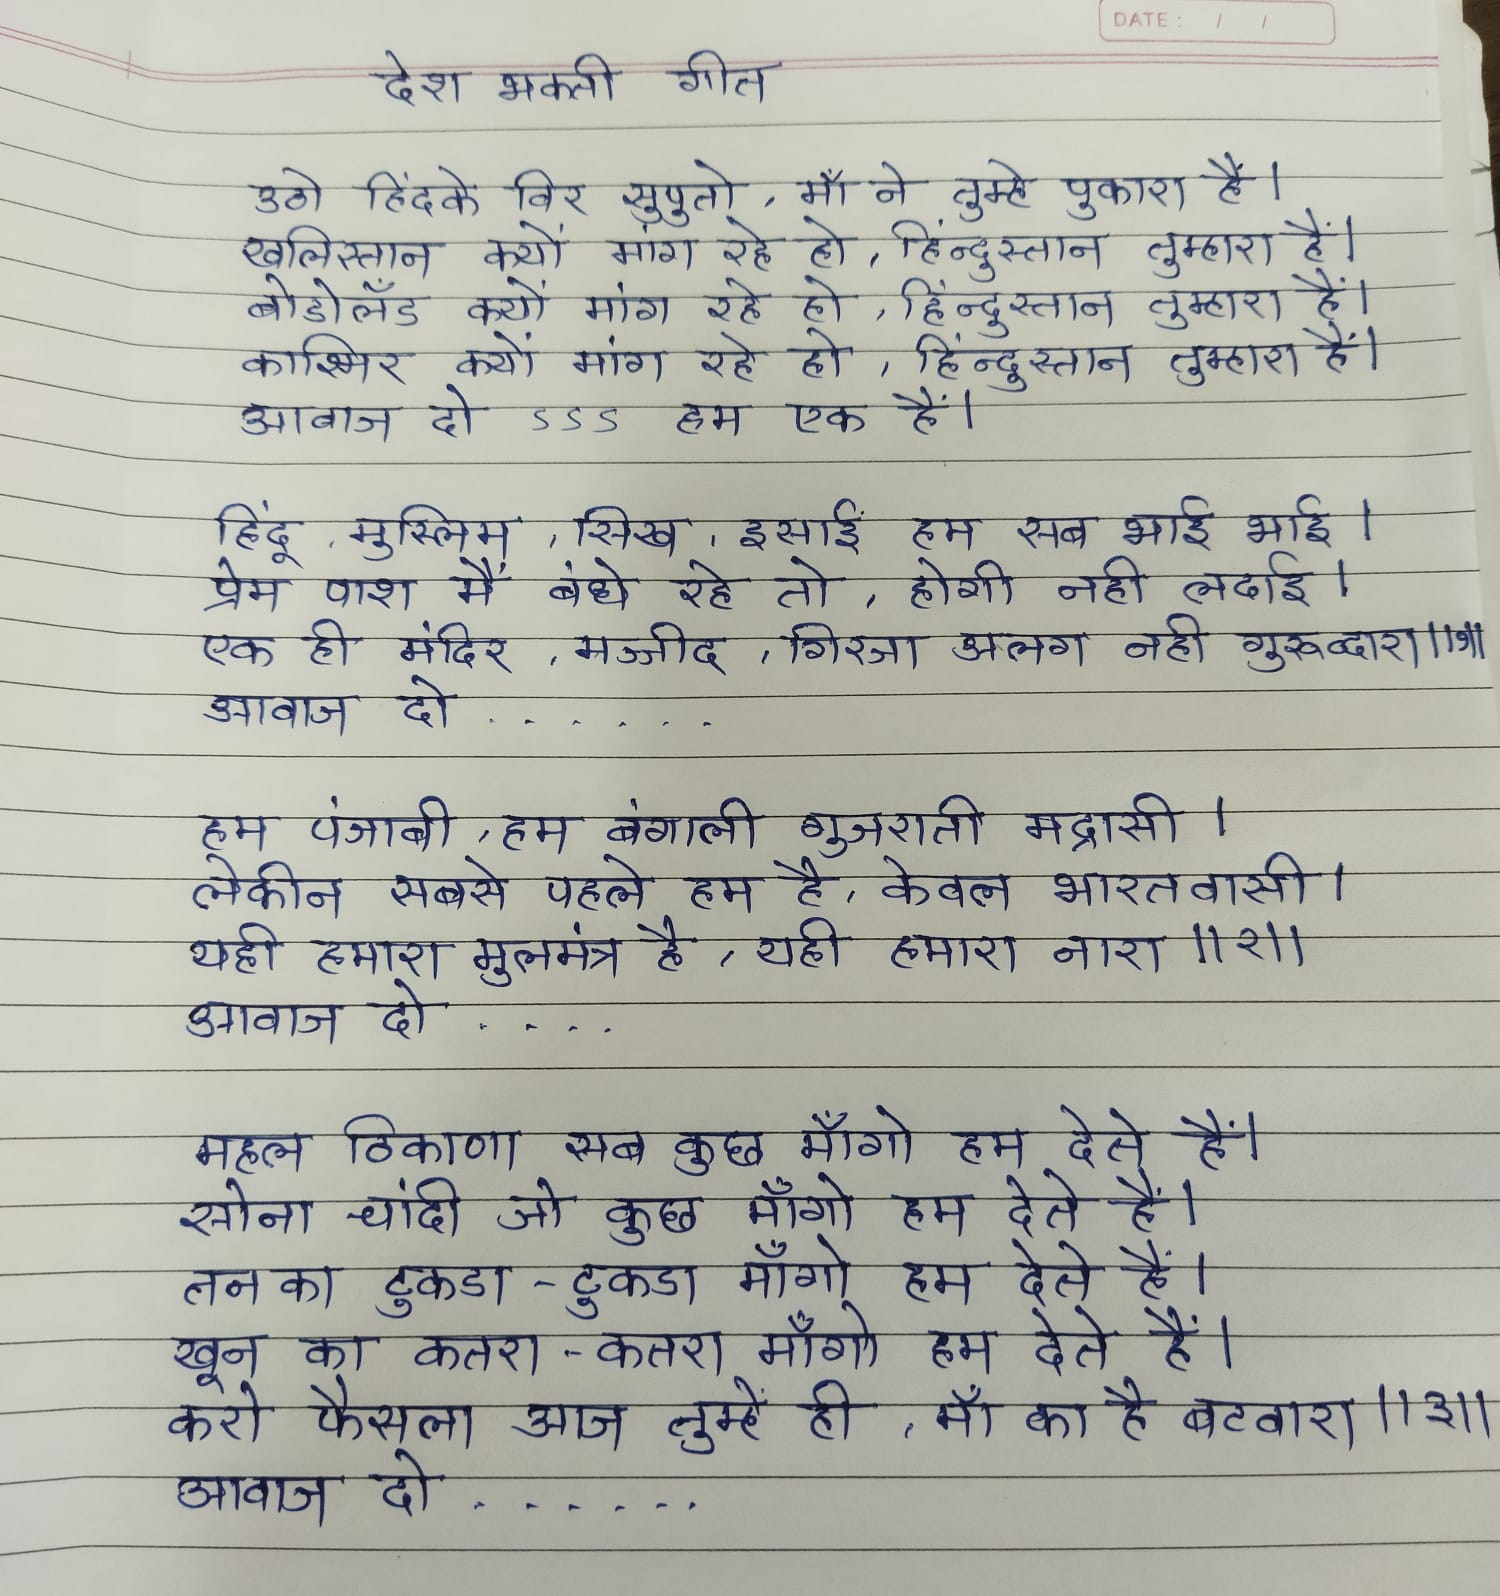 DATE: / /
देश भक्ती गीत
उठो हिंदके विर सुपुतो, माँ ने तुम्हे पुकारा हैं।
खलिस्तान क्यों मांग रहे हो, हिंन्दुस्तान तुम्हारा हैं।
बोडोलँड क्यों मांग रहे हो, हिंन्दुस्तान तुम्हारा हैं।
काश्मिर क्यों मांग रहे हो, हिंन्दुस्तान तुम्हारा हैं।
आवाज दो ऽऽऽ हम एक हैं।
हिंदू, मुस्लिम, सिख, इसाई हम सब भाई भाई।
प्रेम पाश मैं बंधे रहे तो, होगी नही लढाई।
एक ही मंदिर, मज्जीद, गिरजा अलग नही गुरूव्दारा॥१॥
आवाज दो . . . . . .
हम पंजाबी, हम बंगाली गुजराती मद्रासी।
लेकीन सबसे पहले हम है, केवल भारतवासी।
यही हमारा मुलमंत्र है, यही हमारा नारा॥२॥
आवाज दो . . . . .
महल ठिकाणा सब कुछ माँगो हम देते हैं।
सोना चांदी जो कुछ माँगो हम देते हैं।
तन का टुकडा - टुकडा माँगो हम देते हैं।
खून का कतरा - कतरा माँगो हम देते हैं।
करो फैसला आज तुम्हें ही, माँ का है बटवारा॥३॥
आवाज दो . . . . . . .